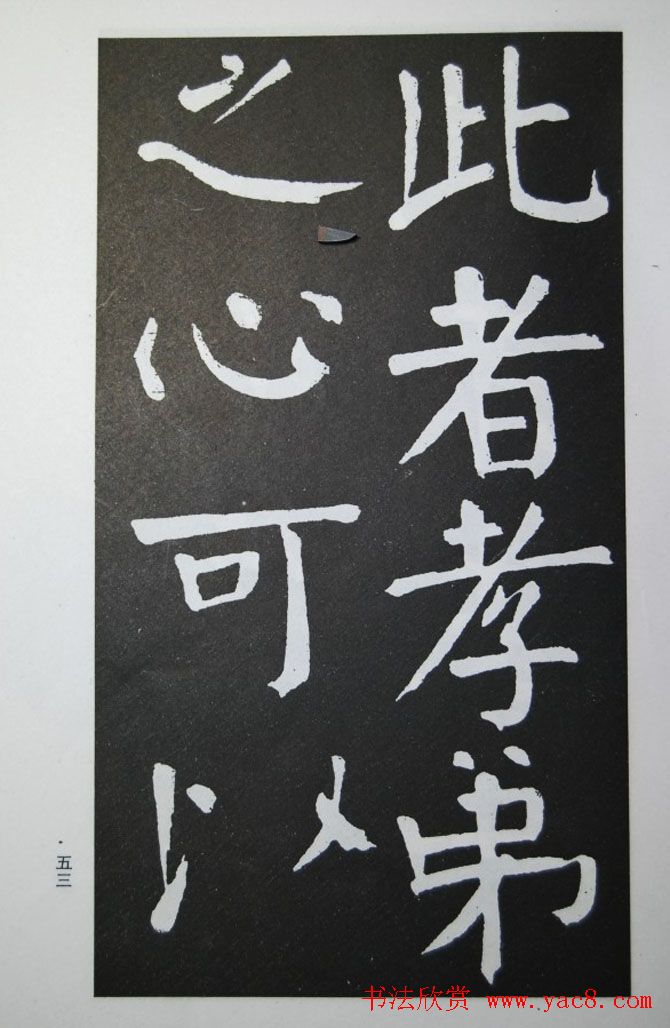 此者孝弟
之心可以
·五三
书法欣赏 www.yac8.com